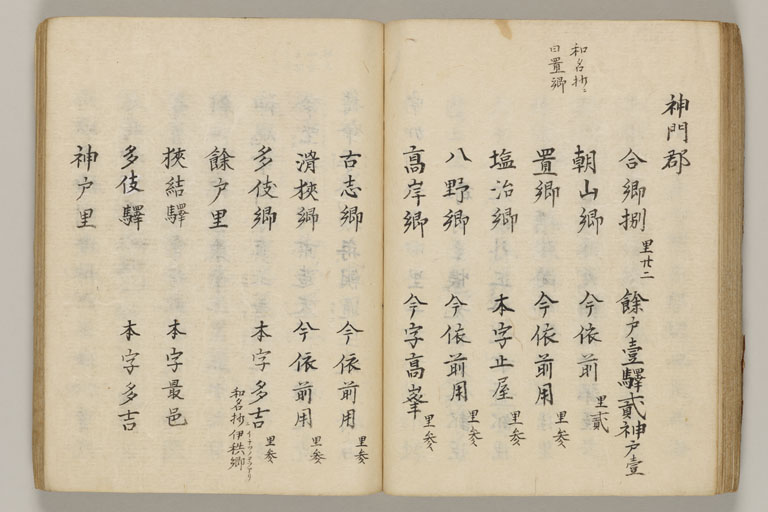 神門郡
合郷捌 里廿二 餘戸壹驛貳神戸壹
和名抄ニ
日置郷
朝山郷 今依前用 里貳
置郷 今依前用 里参
塩冶郷 本字止屋 里参
八野郷 今依前用 里参
髙岸郷 今字髙峯 里参
古志郷 今依前用 里参
滑狭郷 今依前用 里参
多伎郷 本字多吉 里参
和名抄伊秩郷
餘戸里
狭結驛 本字最邑
多伎驛 本字多吉
神戸里